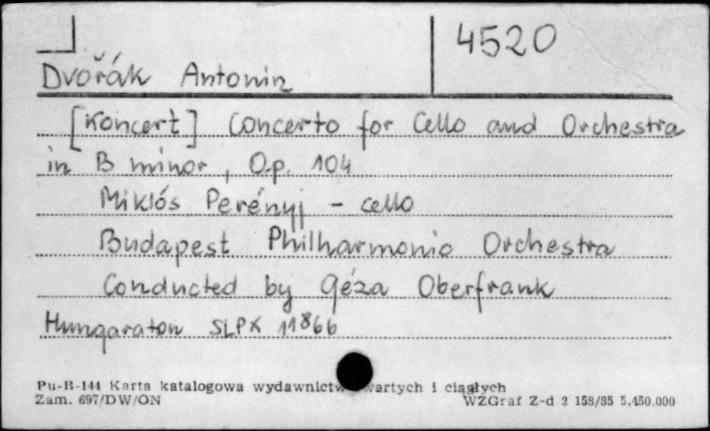 4520
Dvořák Antonin
[Koncert] Concerto for Cello and Orchestra
in B minor, Op. 104
Miklós Perényi - cello
Budapest Philharmonic Orchestra
Conducted by Géza Oberfrank
Hungaraton SLPX 11866
Pu-B-144 Karta katalogowa wydawnictw zwartych i ciągłych
Zam. 697/DW/ON WZGraf Z-d 2 158/85 5.450.000